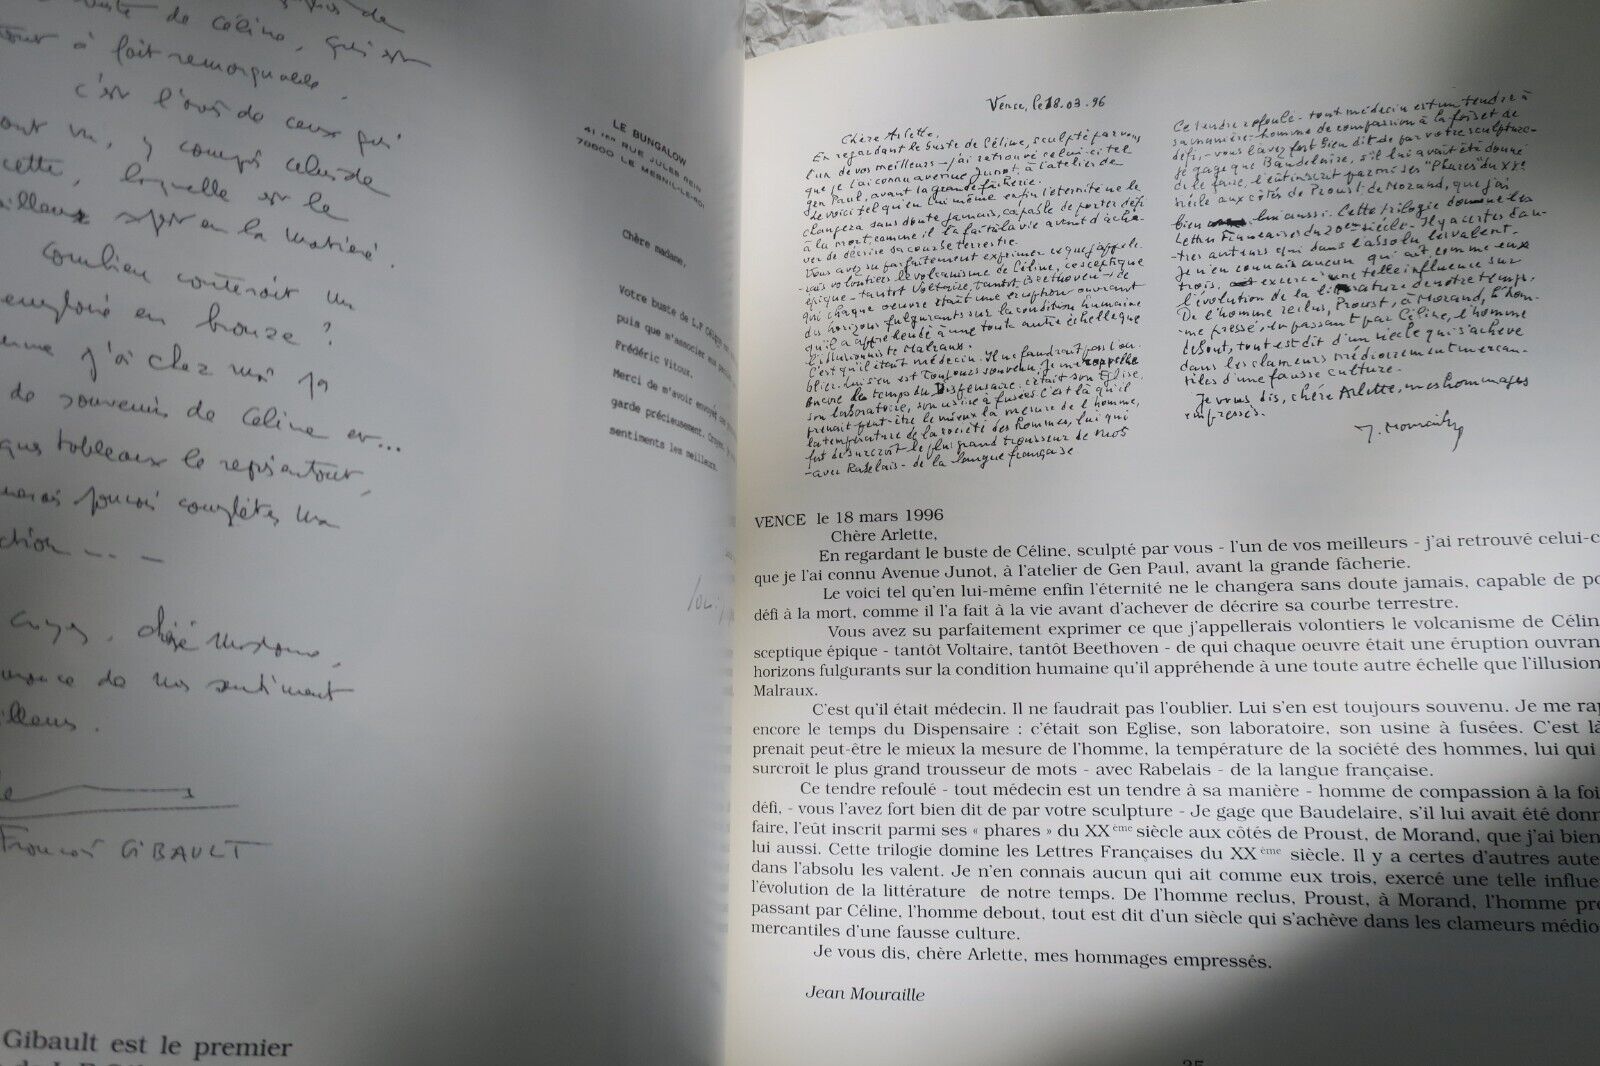 de Céline, qui est
à fait remarquable.
c'est l'avis de ceux qui
ont vu, y compris celui de
laquelle est le
en la matière.
Combien couterait un
en bronze ?
j'ai chez moi 19
de souvenirs de Céline et...
tableaux le représentant,
pouvoir compléter ma
chère Madame,
de mes sentiment
François GIBAULT
Gibault est le premier
LE BUNGALOW
41 TER RUE JULES REIN
78600 LE MESNIL-LE-ROI
Chère madame,
Votre buste de L.F
puis que m'associer aux
Frédéric Vitoux.
Merci de m'avoir envoyé
garde précieusement.
sentiments les meilleurs.
Vence, le 18.03.96
Chère Arlette,
En regardant le buste de Céline, sculpté par vous
l'un de vos meilleurs - j'ai retrouvé celui-ci tel
que je l'ai connu avenue Junot, à l'atelier de
gen Paul, avant la grande fâcherie.
Le voici tel qu'en lui même enfin l'éternité ne le
changera sans doute jamais, capable de porter défi
à la mort, comme il l'a fait à la vie avant d'ache-
ver de décrire sa courbe terrestre.
Vous avez su parfaitement exprimer ce que j'appele-
rais volontiers le volcanisme de Céline, ce sceptique
épique - tantôt Voltaire, tantôt Beethoven - de
qui chaque oeuvre était une éruption ouvrant
des horizons fulgurants sur la condition humaine
qu'il appréhende à une toute autre échelle que
l'illusionniste Malraux.
C'est qu'il était médecin. Il ne faudrait pas l'ou-
blier. Lui s'en est toujours souvenu. Je me rappelle
encore le temps du Dispensaire : c'était son Eglise,
son laboratoire, son usine à fusées. C'est là qu'il
prenait peut-être le mieux la mesure de l'homme,
la température de la société des hommes, lui qui
fut de surcroît le plus grand trousseur de mots
- avec Rabelais - de la langue française
Ce tendre refoulé - tout médecin est un tendre à
sa manière - homme de compassion à la fois et de
défi, - vous l'avez fort bien dit de par votre sculpture -
je gage que Baudelaire, s'il lui avait été donné
de le faire, l'eût inscrit parmi ses "Phares" du XXe
siècle aux côtés de Proust de Morand, que j'ai
bien connu, lui aussi. Cette trilogie domine les
Lettres Françaises du 20eme siècle. Il y a certes d'au-
tres auteurs qui dans l'absolu les valent.
Je n'en connais aucun qui ait comme eux
trois, exercé une telle influence sur
l'évolution de la littérature de notre temps.
De l'homme reclus, Proust, à Morand, l'hom-
me pressé, en passant par Céline, l'homme
debout, tout est dit d'un siècle qui s'achève
dans les clameurs médiocrement mercan-
tiles d'une fausse culture.
Je vous dis, chère Arlette, mes hommages
empressés.
J. Mouraille
VENCE le 18 mars 1996
Chère Arlette,
En regardant le buste de Céline, sculpté par vous - l'un de vos meilleurs - j'ai retrouvé celui-c
que je l'ai connu Avenue Junot, à l'atelier de Gen Paul, avant la grande fâcherie.
Le voici tel qu'en lui-même enfin l'éternité ne le changera sans doute jamais, capable de po
défi à la mort, comme il l'a fait à la vie avant d'achever de décrire sa courbe terrestre.
Vous avez su parfaitement exprimer ce que j'appellerais volontiers le volcanisme de Célin
sceptique épique - tantôt Voltaire, tantôt Beethoven - de qui chaque oeuvre était une éruption ouvran
horizons fulgurants sur la condition humaine qu'il appréhende à une toute autre échelle que l'illusion
Malraux.
C'est qu'il était médecin. Il ne faudrait pas l'oublier. Lui s'en est toujours souvenu. Je me rap
encore le temps du Dispensaire : c'était son Eglise, son laboratoire, son usine à fusées. C'est là
prenait peut-être le mieux la mesure de l'homme, la température de la société des hommes, lui qui
surcroît le plus grand trousseur de mots - avec Rabelais - de la langue française.
Ce tendre refoulé - tout médecin est un tendre à sa manière - homme de compassion à la foi
défi. - vous l'avez fort bien dit de par votre sculpture - Je gage que Baudelaire, s'il lui avait été donn
faire, l'eût inscrit parmi ses « phares » du XXème siècle aux côtés de Proust, de Morand, que j'ai bien
lui aussi. Cette trilogie domine les Lettres Françaises du XXème siècle. Il y a certes d'autres aute
dans l'absolu les valent. Je n'en connais aucun qui ait comme eux trois, exercé une telle influe
l'évolution de la littérature de notre temps. De l'homme reclus, Proust, à Morand, l'homme pre
passant par Céline, l'homme debout, tout est dit d'un siècle qui s'achève dans les clameurs médio
mercantiles d'une fausse culture.
Je vous dis, chère Arlette, mes hommages empressés.
Jean Mouraille